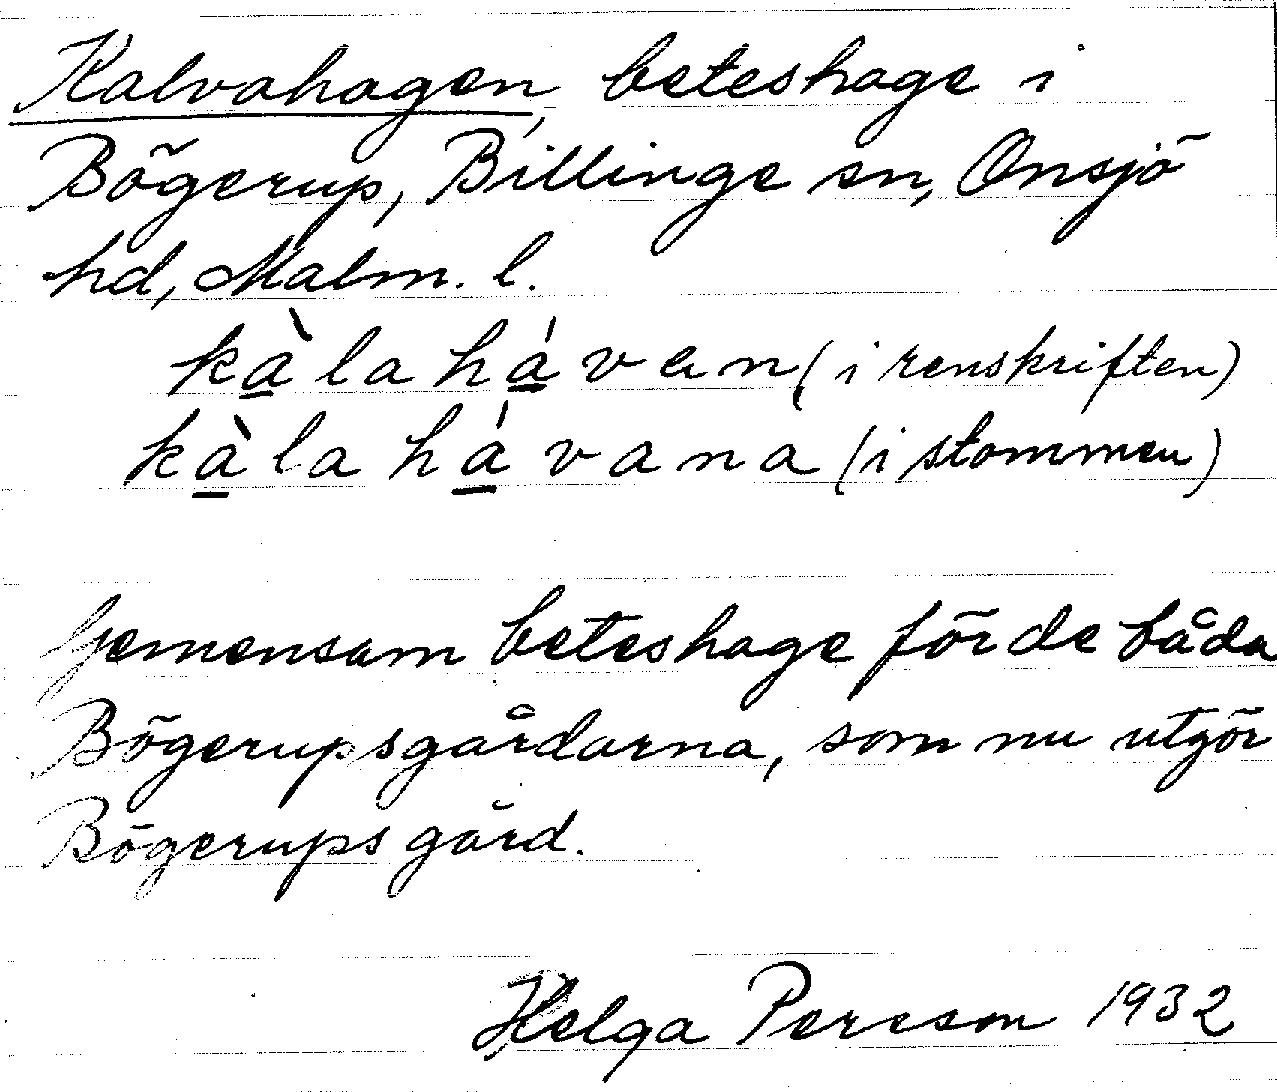 Kalvahagen, beteshage i
Bögerup, Billinge sn, Onsjö
hd, Malm. l.
kàlahávan (i renskriften)
kàlahávana (i stommen)
Gemensam beteshage för de båda
Bögerupsgårdarna, som nu utgör
Bögerups gård.
Helga Persson 1932